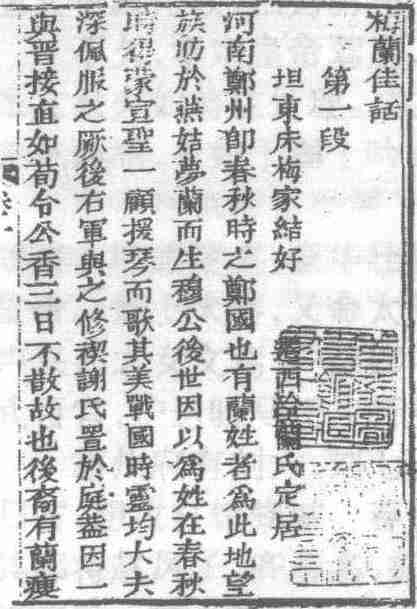 梅蘭佳話
第一段
坦東床梅家結好　遷西泠蘭氏定居
河南鄭州卽春秋時之鄭國也有蘭姓者爲此地望
族昉於燕姞夢蘭而生穆公後世因以爲姓在春秋
時得蒙宣聖一顧援琴而歌其美戰國時靈均大夫
深佩服之厥後右軍與之修禊謝氏置於庭葢因一
與晋接直如荀令公香三日不散故也後裔有蘭瘦